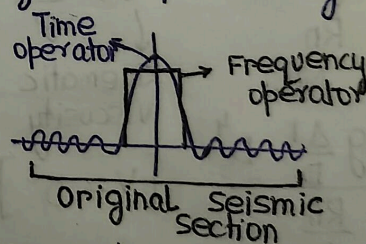 Time
operator
Frequency
operator
original seismic
section